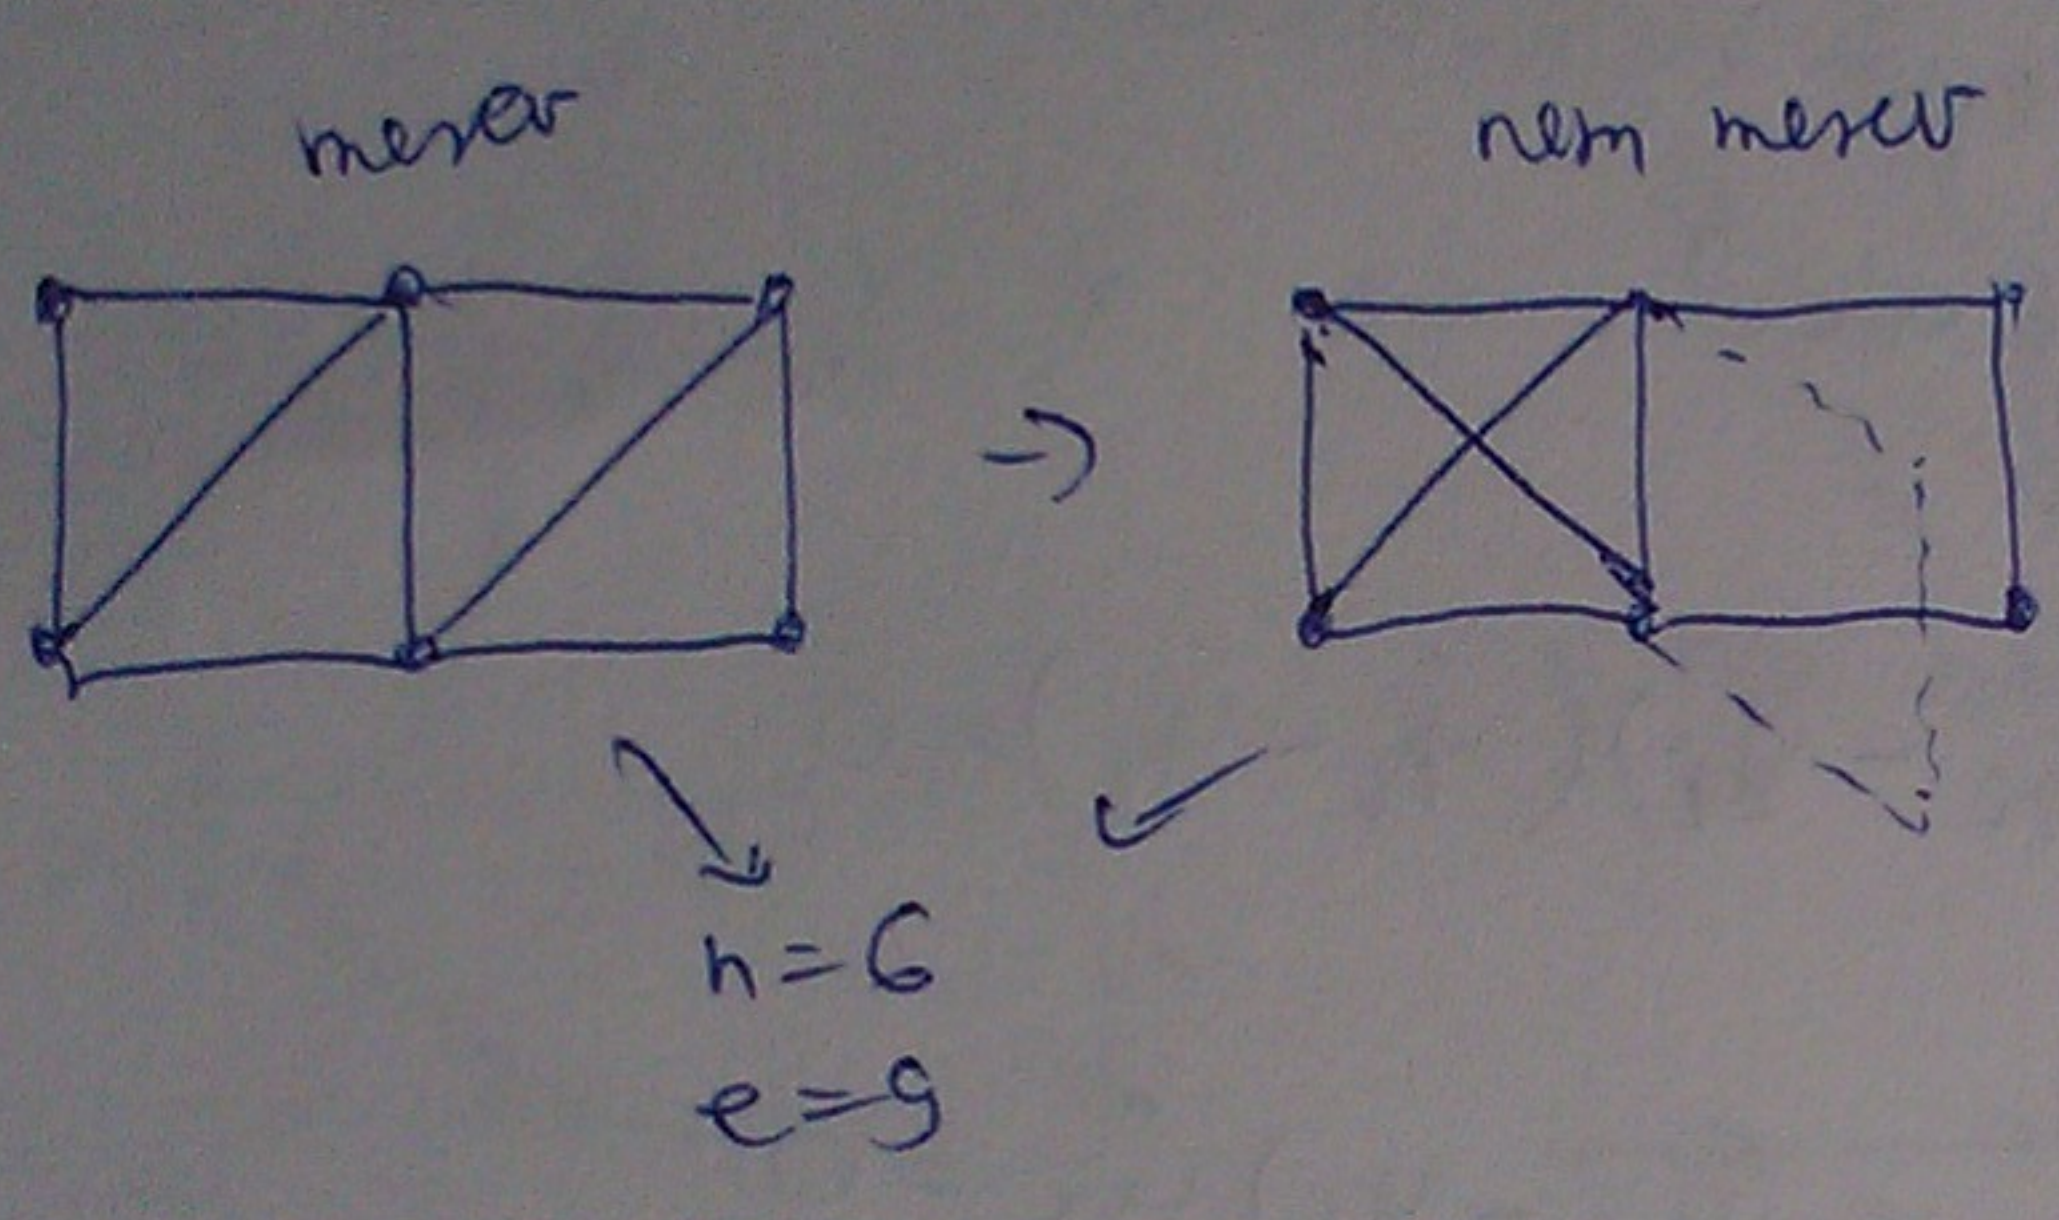 merev
nem merev
n=6
e=9